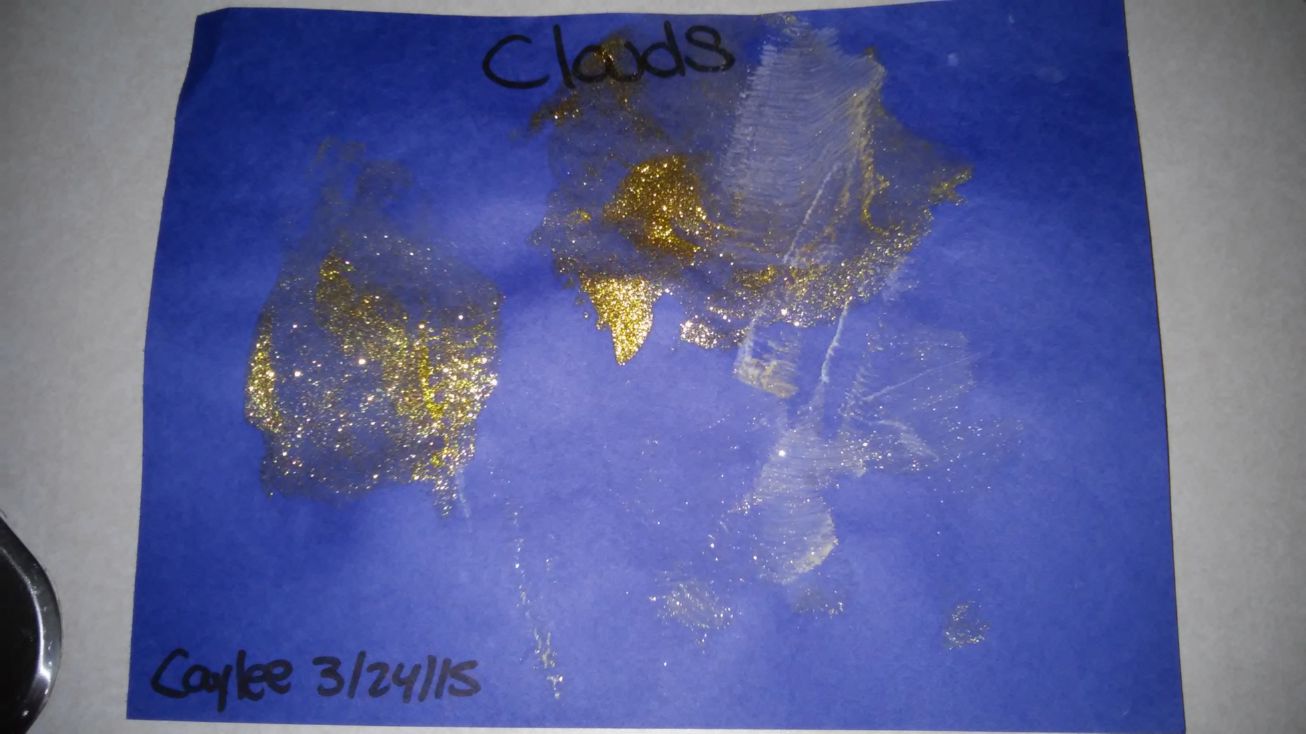 Clouds
Caylee 3/24/15